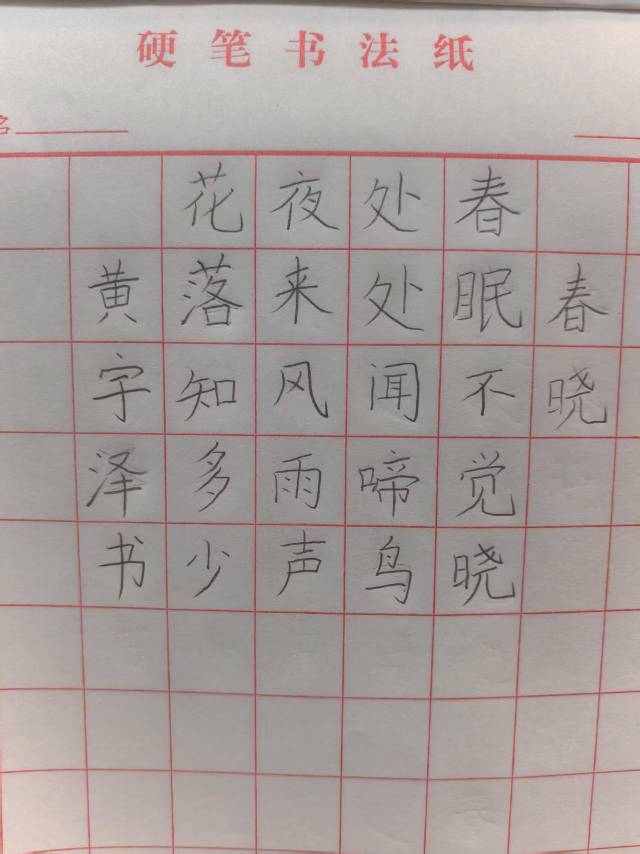 硬笔书法纸
名
春晓
春眠不觉晓
处处闻啼鸟
夜来风雨声
花落知多少
黄宇泽书